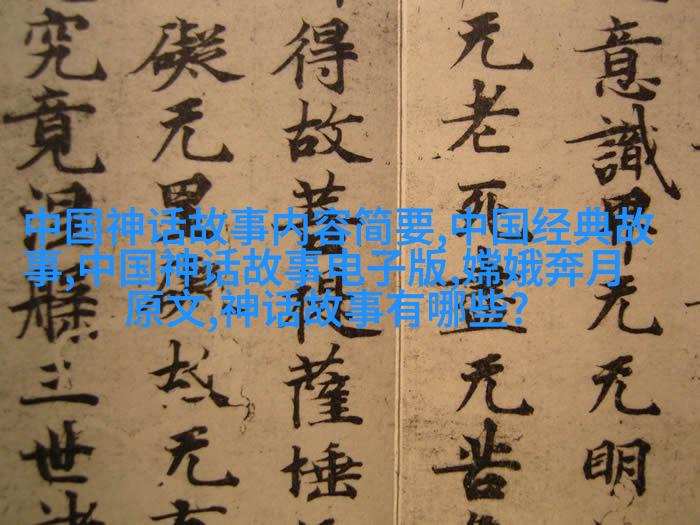 中国神话故事内容简要,中国经典故
事,中国神话故事电子版,嫦娥奔月
原文,神话故事有哪些?
意識界无无明
无老死盡无苦
得故菩提薩埵
礙无罣礙故无
究竟涅槃三世